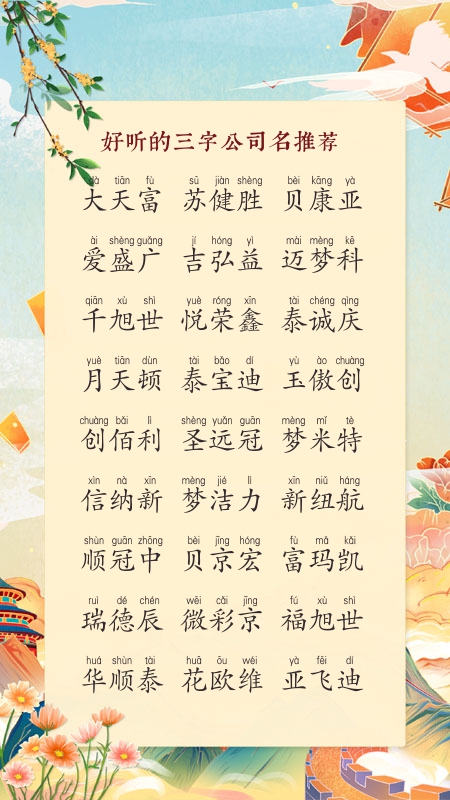 好听的三字公司名推荐
dà tiān fù sū jiàn shèng bèi kāng yà
大天富 苏健胜 贝康亚
ài shèng guǎng jí hóng yì mài mèng kē
爱盛广 吉弘益 迈梦科
qiān xù shì yuè róng xīn tài chéng qìng
千旭世 悦荣鑫 泰诚庆
yuè tiān dùn tài bǎo dí yù ào chuàng
月天顿 泰宝迪 玉傲创
chuàng bǎi lì shèng yuǎn guān mèng mǐ tè
创佰利 圣远冠 梦米特
xìn nà xīn mèng jié lì xīn niǔ háng
信纳新 梦洁力 新纽航
shùn guān zhōng bèi jīng hóng fù mǎ kǎi
顺冠中 贝京宏 富玛凯
ruì dé chén wēi cǎi jīng fú xù shì
瑞德辰 微彩京 福旭世
huá shùn tài huā ōu wéi yà fēi dí
华顺泰 花欧维 亚飞迪